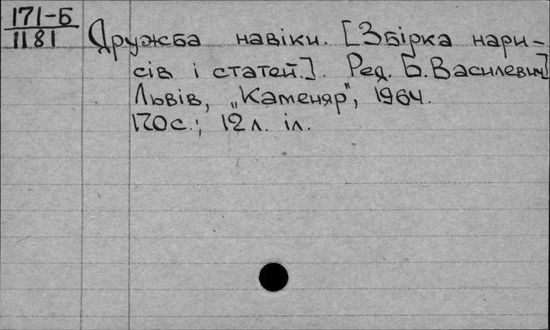 171-Б
1181
Дружба навіки. [Збірка нари-
сів і статей.]. Ред. Б. Василевич]
Львів, „Каменяр", 1964.
170с.; 12л. іл.